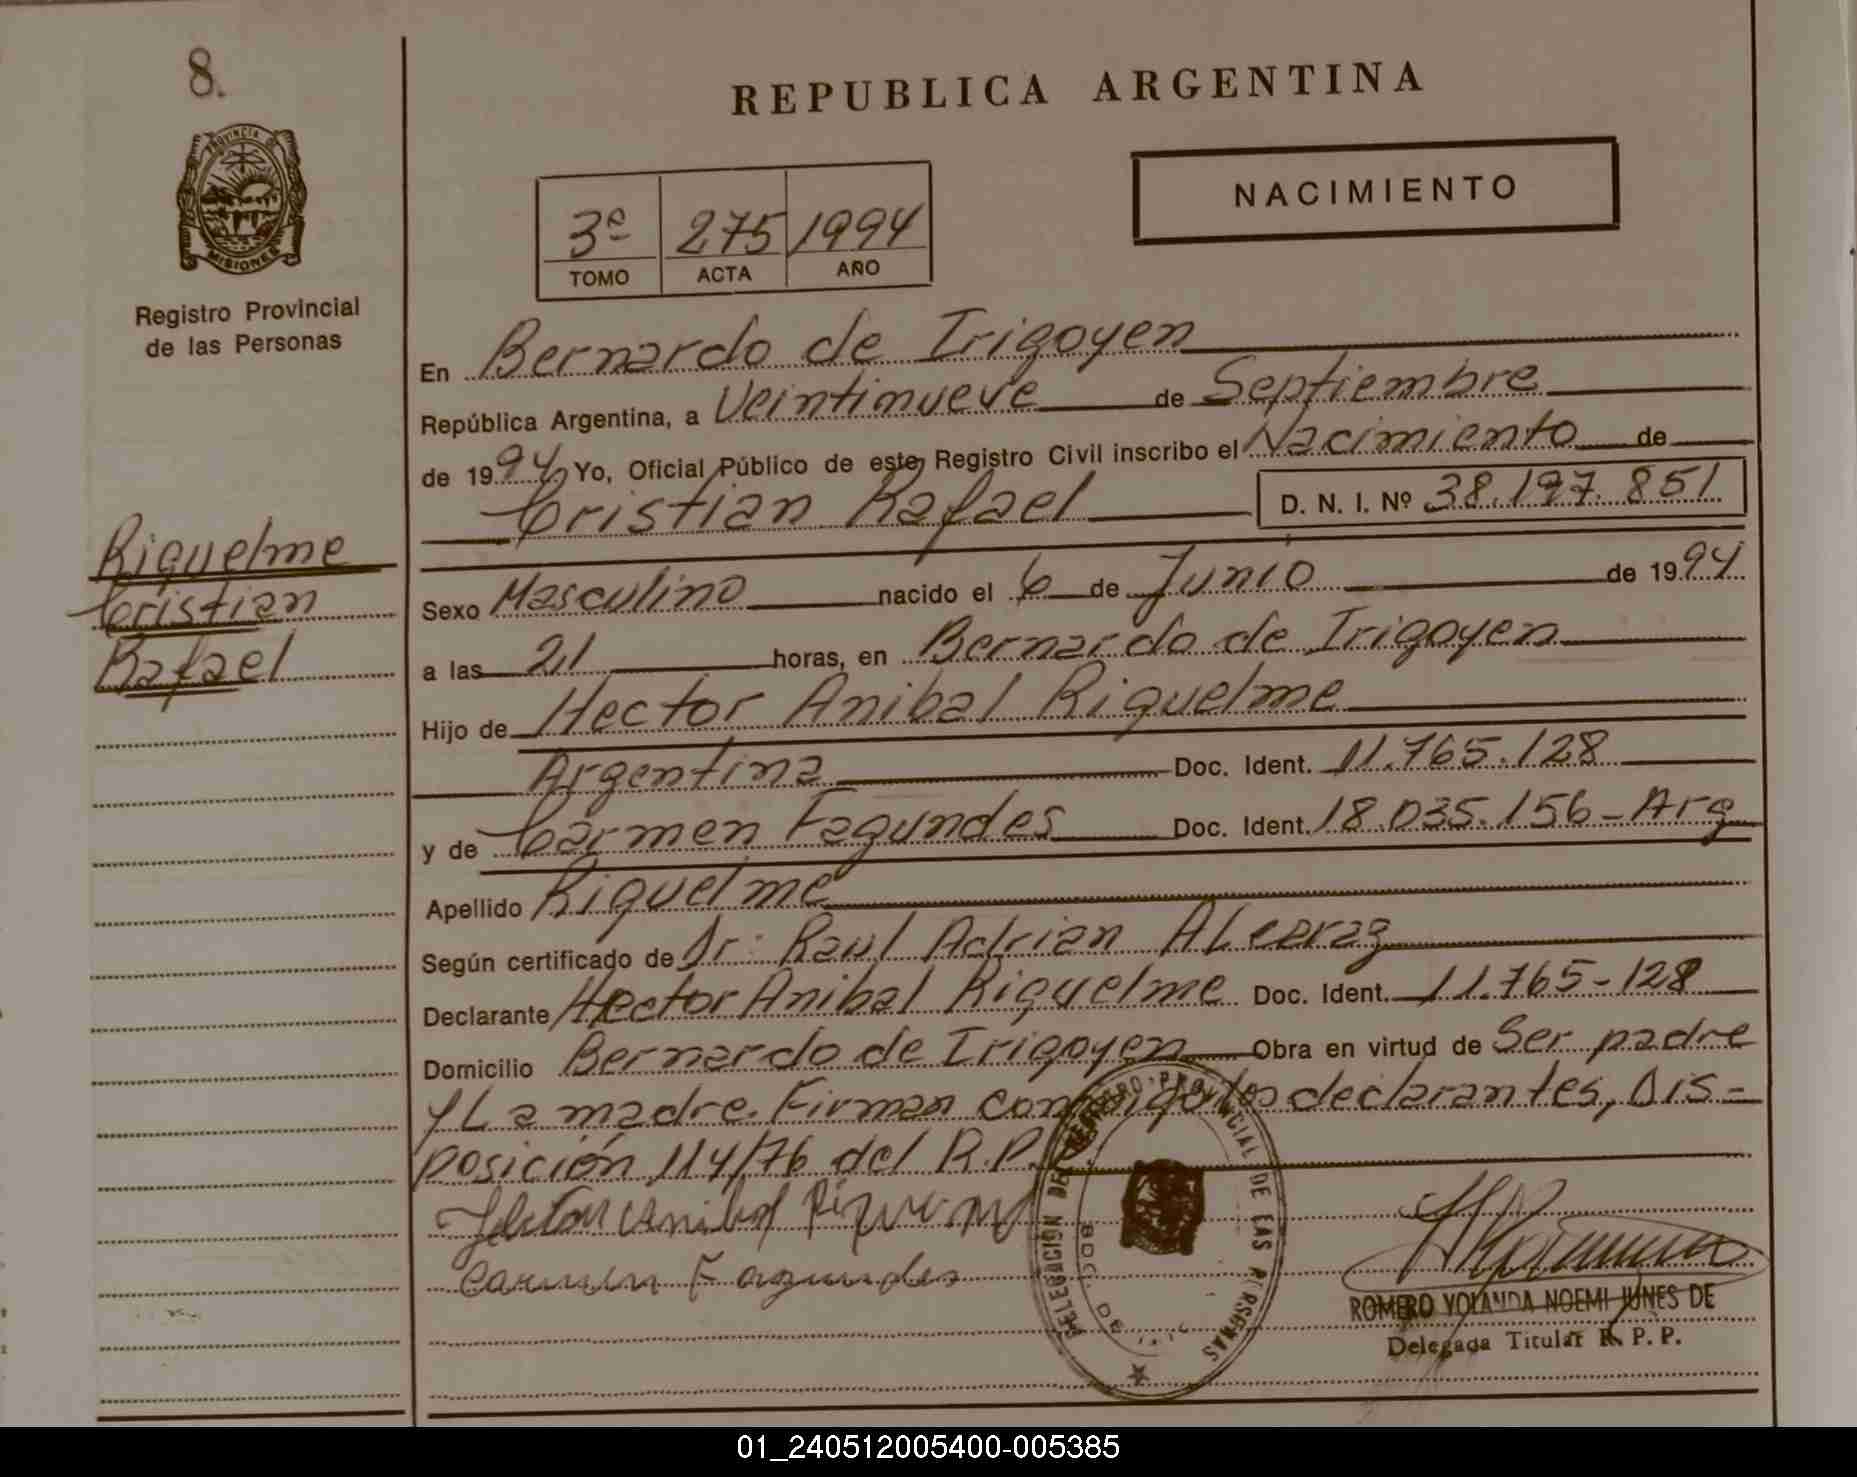 8.
PROVINCIA DE
MISIONES
Registro Provincial
de las Personas
Riquelme
Cristian
Rafael
REPUBLICA ARGENTINA
NACIMIENTO
3º 275 1994
TOMO ACTA AÑO
En Bernardo de Irigoyen
República Argentina, a Veintinueve de Septiembre
de 1994 Yo, Oficial Público de este Registro Civil inscribo el Nacimiento de
Cristian Rafael D. N. I. Nº 38.197.851
Sexo Masculino nacido el 6 de Junio de 1994
a las 21 horas, en Bernardo de Irigoyen
Hijo de Hector Anibal Riquelme
Argentina Doc. Ident. 11.765.128
y de Carmen Fagundes Doc. Ident. 18.035.156 - Arg
Apellido Riquelme
Según certificado de Dr: Raul Adrian ALcaraz
Declarante Hector Anibal Riquelme Doc. Ident. 11.765-128
Domicilio Bernardo de Irigoyen Obra en virtud de Ser padre
y La madre. Firman conmigo los declarantes, Dis-
posición 114/76 del R.P.P.
Hector Anibal Riquelme
Carmen Fagundes
DELEGACION DEL REGISTRO PROVINCIAL DE LAS PERSONAS
ROMERO YOLANDA NOEMI JUNES DE
Delegada Titular R. P. P.
01_240512005400-005385